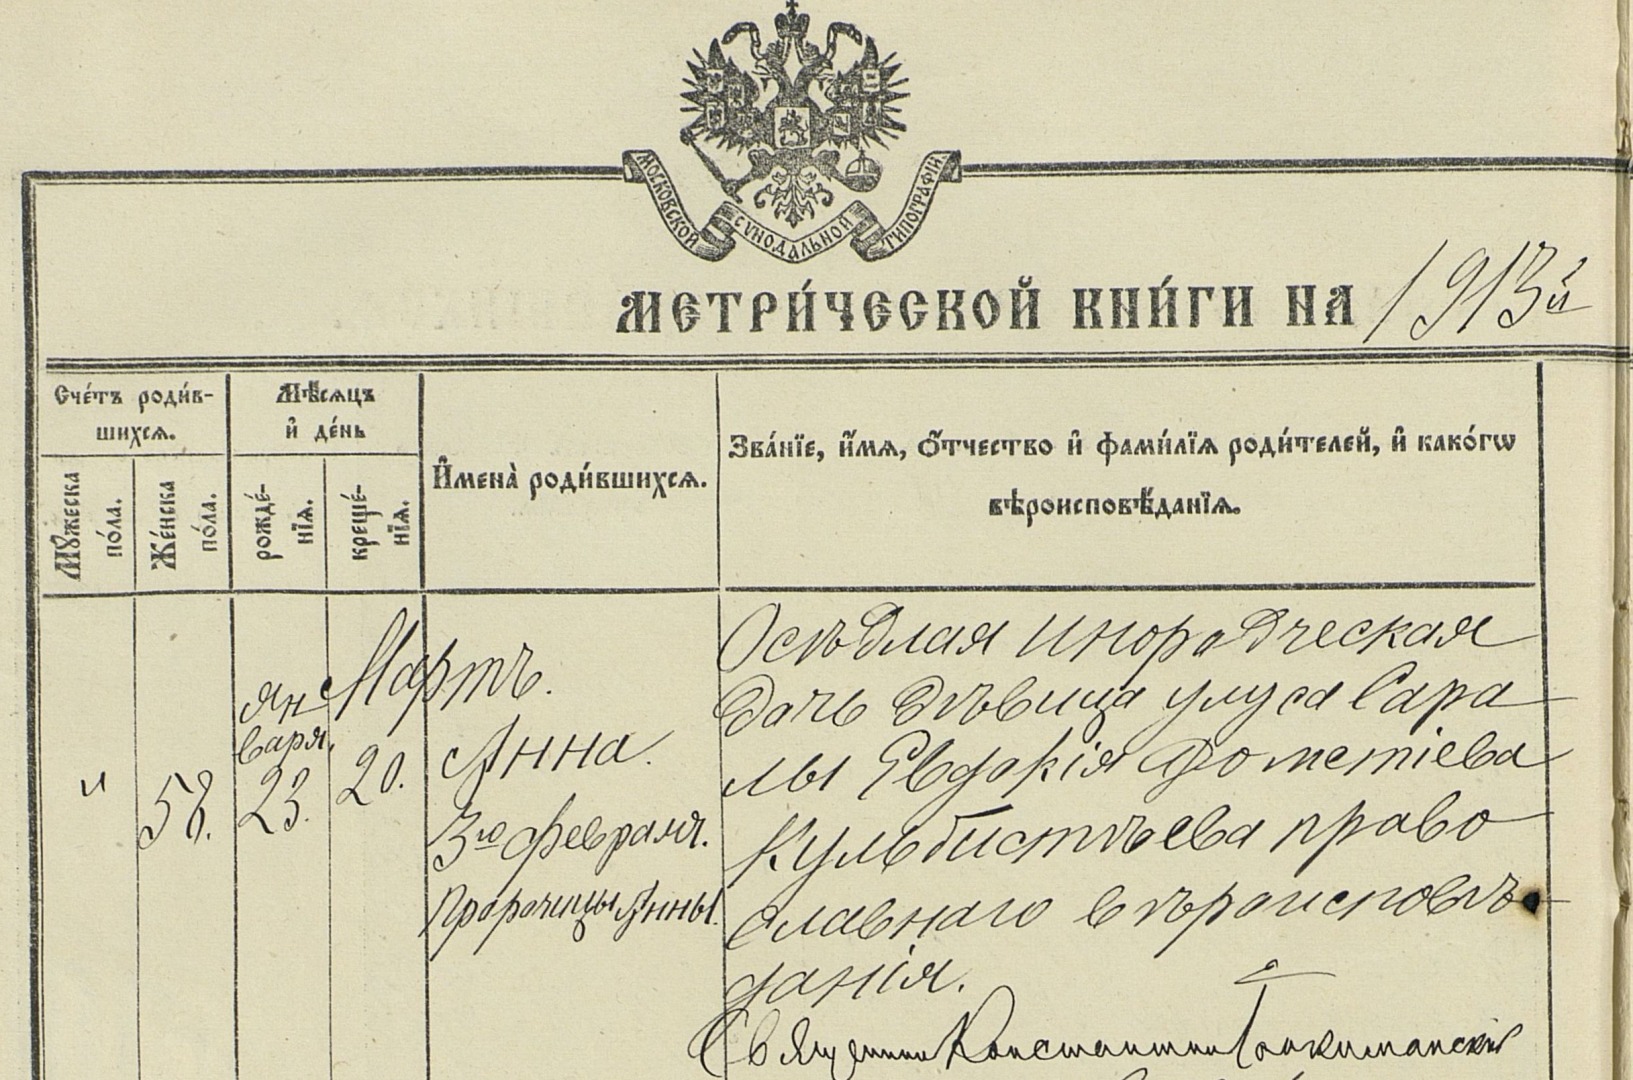 МОСКОВСКОЙ СѴНОДАЛЬНОЙ ТИПОГРАФІИ
МЕТРИ́ЧЕСКОЙ КНИ́ГИ НА 1913й
Сче́тъ роди́в-
шихсѧ.
Мѣ́сѧцъ
и҆ де́нь
И҆мена̀ роди́вшихсѧ.
Зва́нїе, и҆́мѧ, ѻ҆́тчество и҆ фами́лїѧ роди́телей, и҆ како́гѡ
вѣроисповѣ́данїѧ.
Мꙋ́жеска
по́ла.
Же́нска
по́ла.
рожде́-
нїѧ.
креще́-
нїѧ.
Мартъ.
"
58.
ян
варя,
23.
20.
Анна.
3го февраля.
Пророчицы Анны.
Осѣдлая инородческая
дочь дѣвица улуса Сара
лы Евдокія Дометіева
Кульбистѣева право
славнаго вѣроисповѣ
данія.
Священник Константин